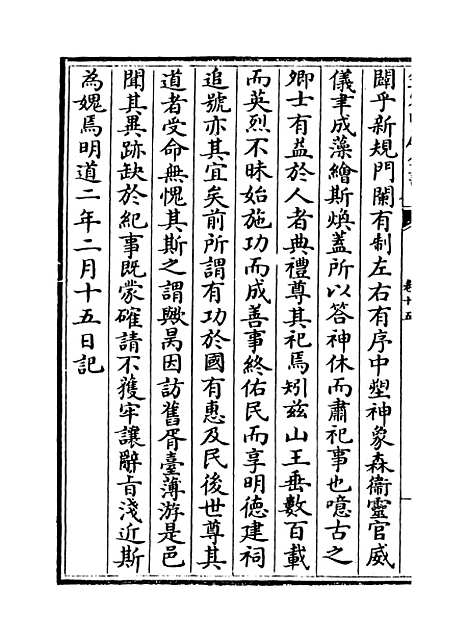 闢乎新規門闌有制左右有序中塑神象森衞靈官威
儀聿成藻繪斯煥蓋所以答神休而肅祀事也噫古之
卿士有益於人者典禮尊其祀焉矧兹山王垂數百載
而英烈不昧始施功而成善事終佑民而享明德建祠
追號亦其宜矣前所謂有功於國有惠及民後世尊其
道者受命無愧其斯之謂歟昺因訪舊胥臺薄游是邑
聞其異跡缺於紀事既蒙確請不獲牢讓辭旨淺近斯
為媿焉明道二年二月十五日記
卷十五